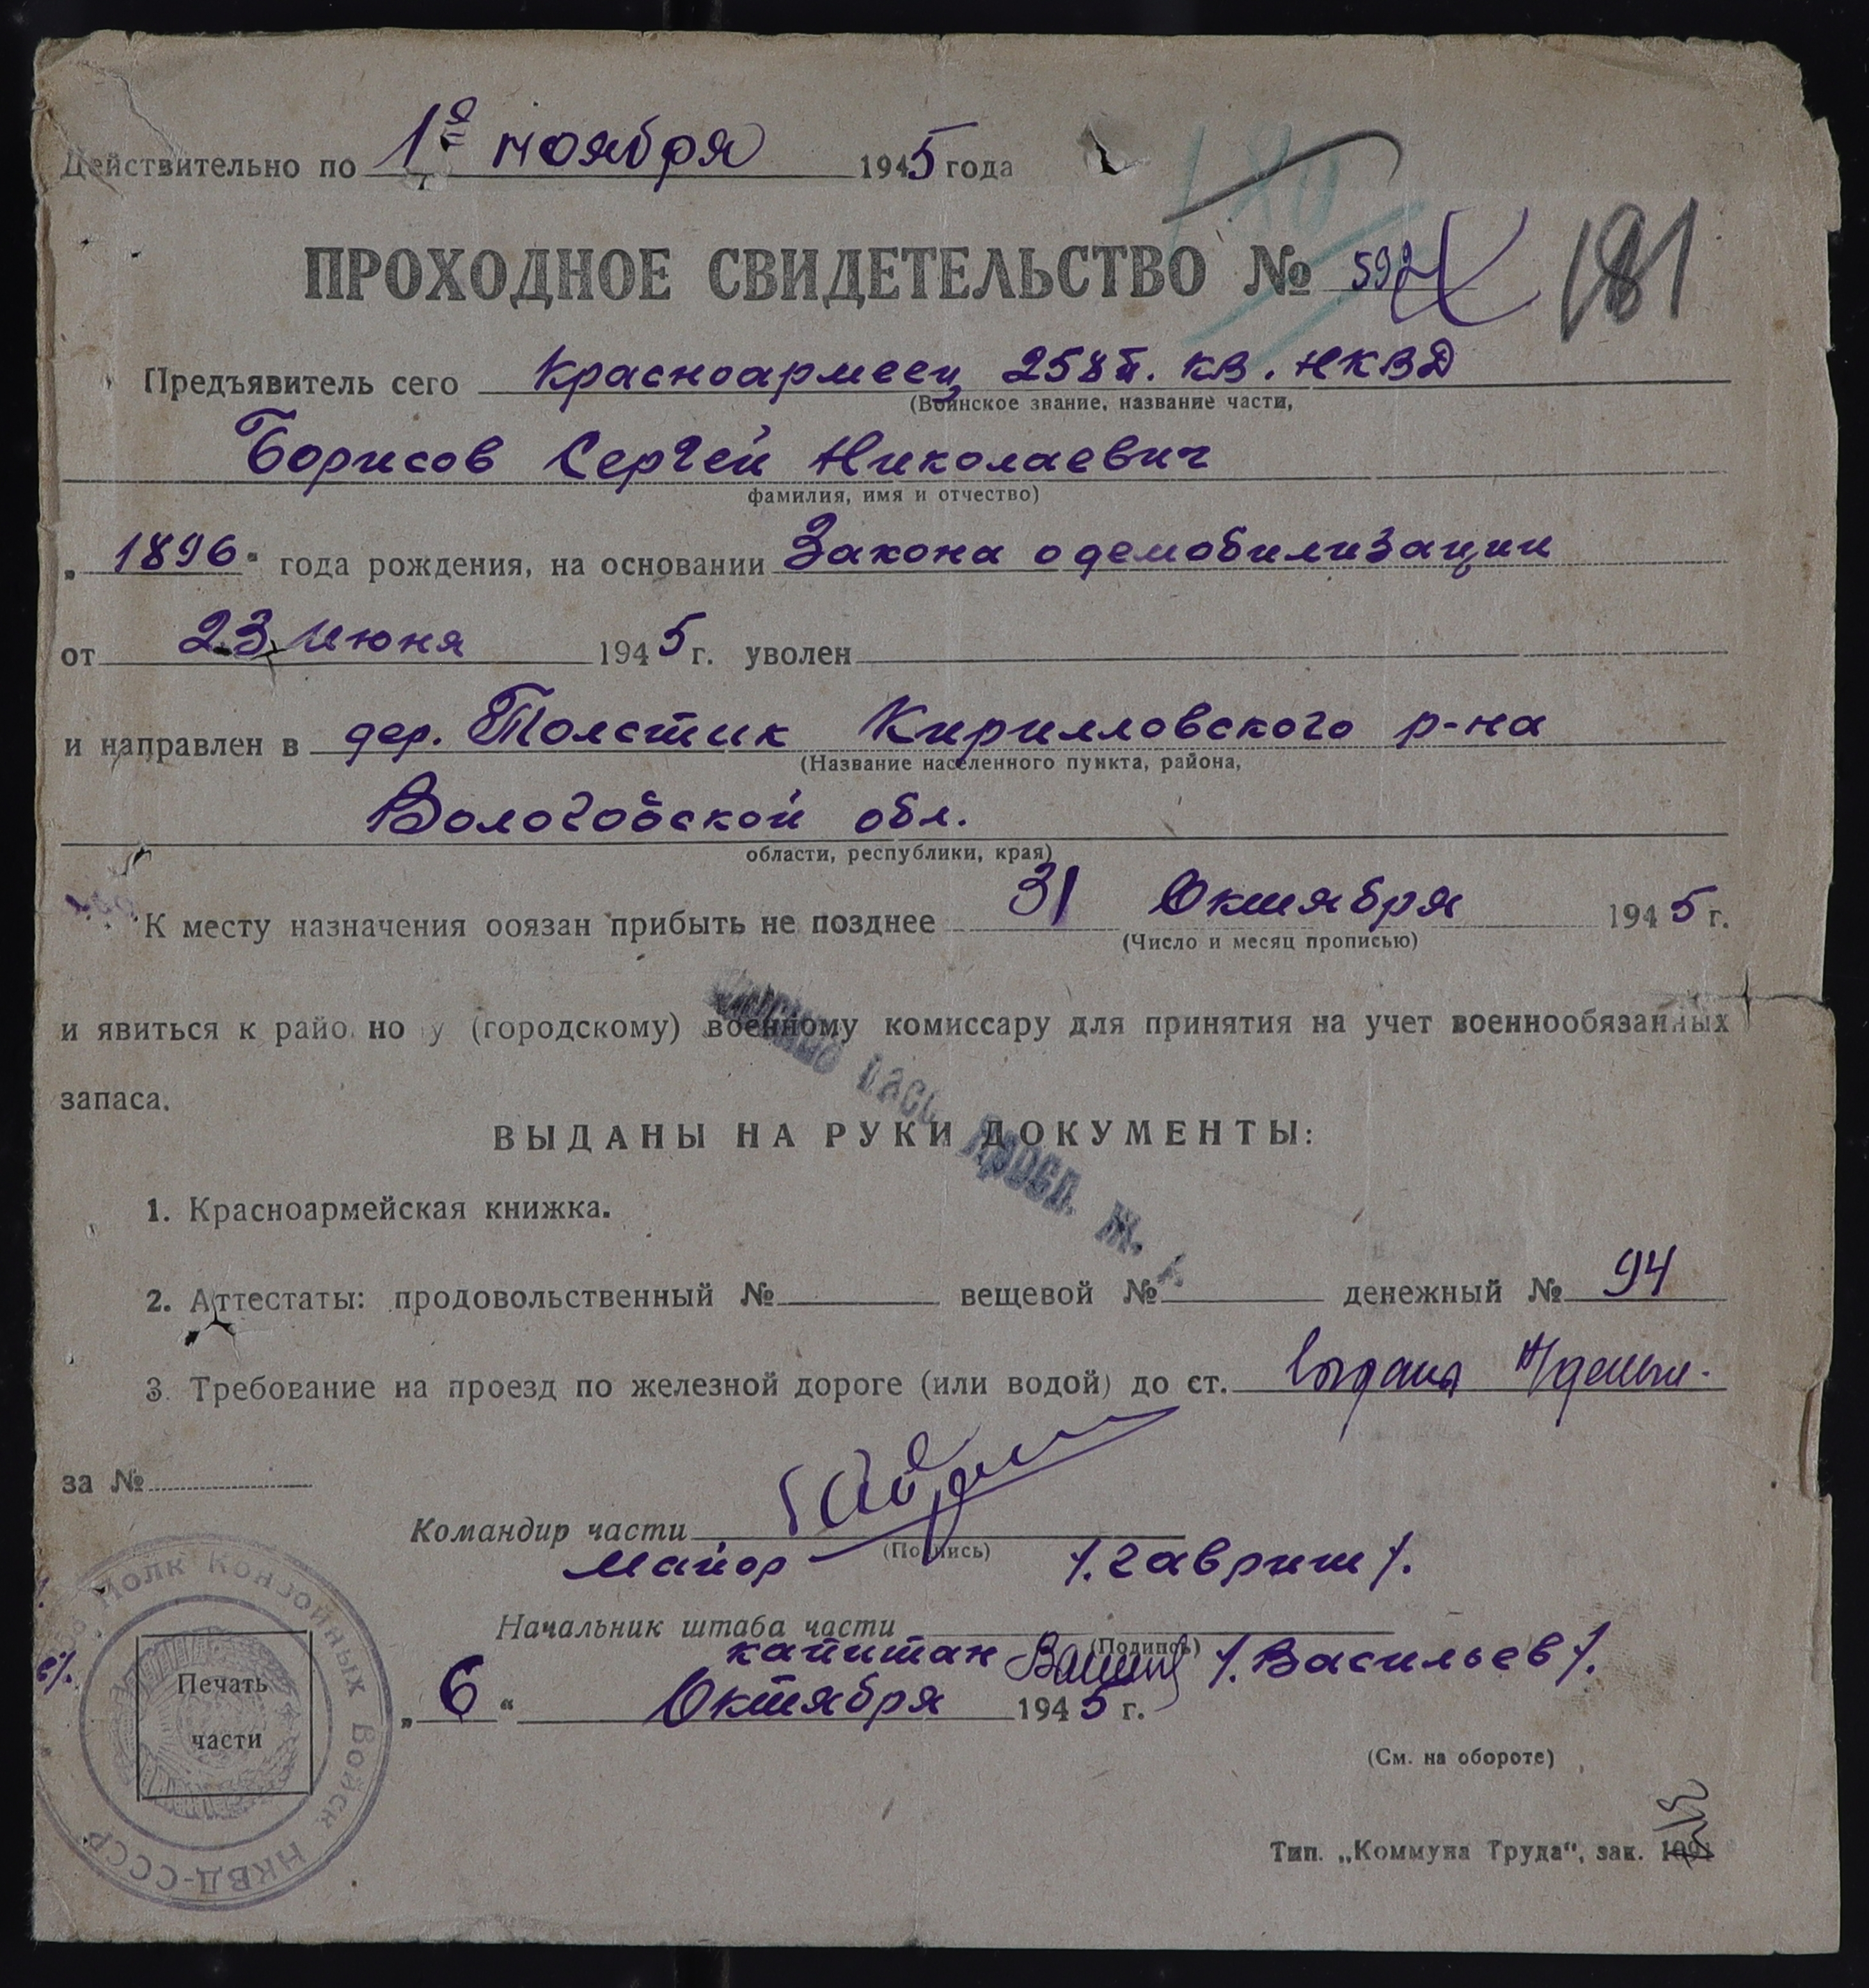 Действительно по 1е ноября 1945 года
181
ПРОХОДНОЕ СВИДЕТЕЛЬСТВО №
Предъявитель сего красноармеец 258 п. кв. НКВД
(Воинское звание, название части,
Борисов Сергей Николаевич
фамилия, имя и отчество)
„1896“ года рождения, на основании Закона о демобилизации
от 23 июня 1945 г. уволен
и направлен в дер. Толстик Кирилловского р-на
(Название населенного пункта, района,
Вологодской обл.
области, республики, края)
К месту назначения обязан прибыть не позднее 31 Октября 1945 г.
(Число и месяц прописью)
и явиться к райо но у (городскому) военному комиссару для принятия на учет военнообязанных
запаса.
ВЫДАНЫ НА РУКИ ДОКУМЕНТЫ:
1. Красноармейская книжка.
2. Аттестаты: продовольственный № вещевой № денежный № 94
3. Требование на проезд по железной дороге (или водой) до ст. выдана
за №
Командир части
(Подпись)
майор /.Гавриш/.
Начальник штаба части
(Подпись)
капитан /.Васильев/.
„6“ Октября 1945 г.
Полк Конвойных Войск НКВД-СССР
Печать
части
(См. на обороте)
Тип. „Коммуна Труда“, зак.